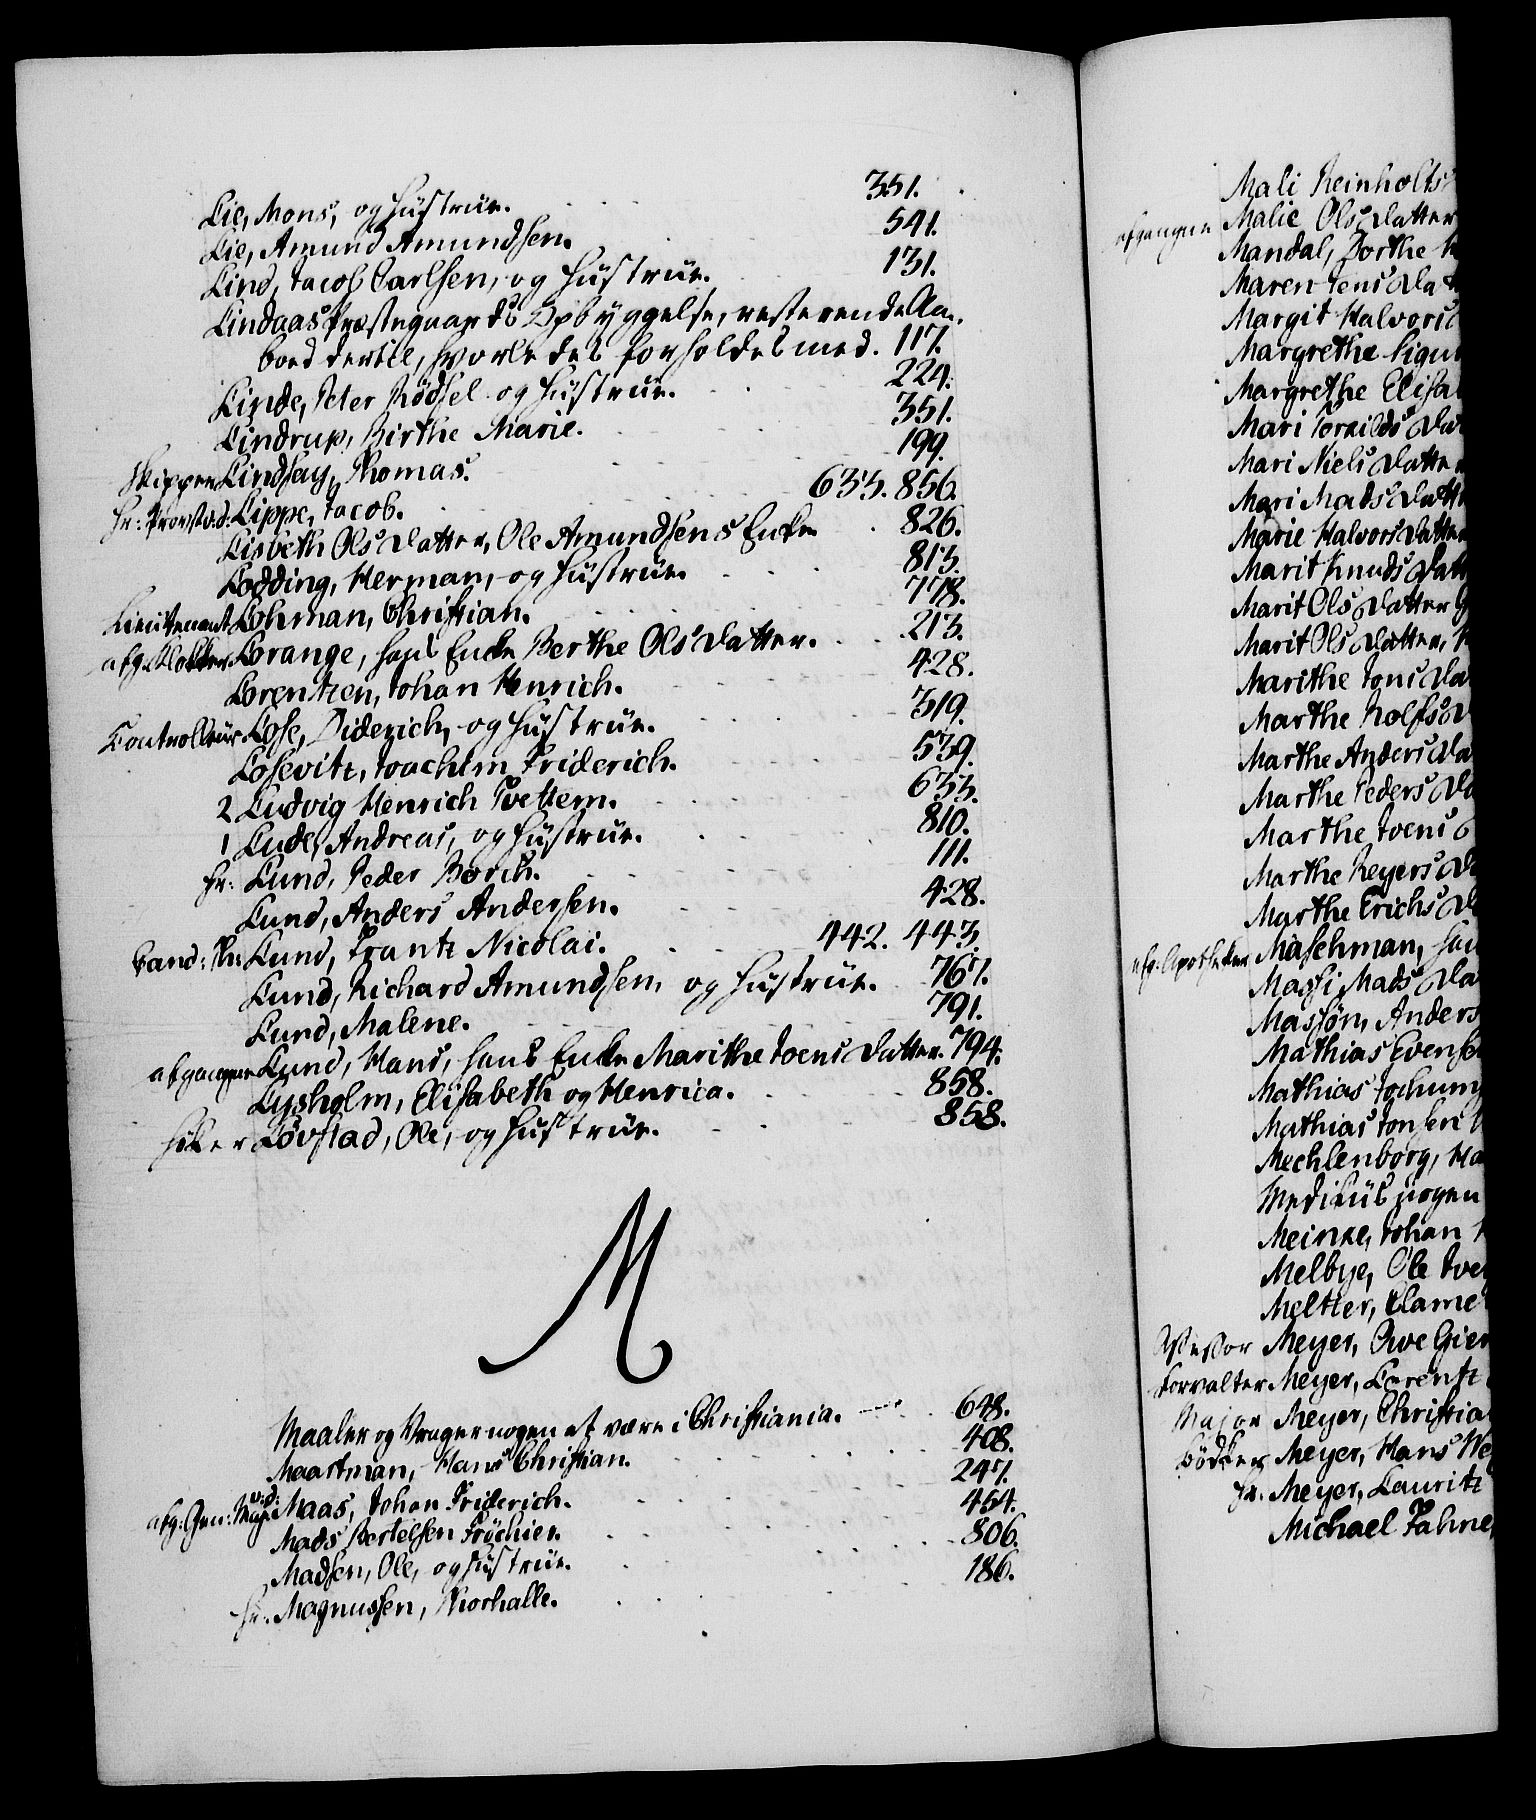 Lie, Mons, og Hustrue. 351.
Lie, Amund Amundsen. 541.
Lind, Jacob Carlsen, og Hustrue. 131.
Lindaas Præstegaards Opbyggelse, resterende Aa-
boed dertil, hvorledes forholdes med. 117.
Linde, Peter Rödsel og Hustrue. 224.
Lindrup, Birthe Marie. 351.
Skipper Lindsay, Thomas. 199.
Hr: Lippe, Jacob. 633. 856.
Lisbeth Ols Datter, Ole Amundsens Enke 826.
Lodding, Herman, og Hustrue. 813.
Lieutenant Lohman, Christian. 778.
afg: Klokker Lorange, hans Enke Berthe Ols Datter. 213.
Lorentzen, Johan Henrich. 428.
Controlleur Lose, Diderich, og Hustrue. 319.
Losevitz, Joachim Friderich. 539.
2 Ludvig Henrich Tvettern. 633.
1 Lude, Andreas, og Hustrue. 810.
Hr: Lund, Peder Borch. 111.
Lund, Anders Andersen. 428.
Cand: Th: Lund, Frantz Nicolai. 442. 443.
Lund, Richard Amundsen og Hustrue. 767.
Lund, Malene. 791.
afgangne Lund, Hans, hans Enke Marithe Joens Datter. 794.
Lysholm, Elisabeth og Henrica. 858.
Løvstad, Ole, og Hustrue. 858.
M
Maaler og Vrager nogen at være i Christiania. 648.
Maartman, Hans Christian. 408.
afg: Gen: Maj: v: d: Maas, Johan Friderich. 247.
Mads Bertelsen Fröchien. 454.
Madsen, Ole, og Hustrue. 806.
Hr. Magnussen, Thorhalle. 186.
Mali Reinholts
afgangne Malie Ols Datter
Mandal, Dorthe
Maren Jens Dat
Margit Halvors
Margrethe Sigu
Margrethe Elisa
Mari Torkilds Dat
Mari Niels Datte
Mari Mads Datt
Marie Halvors Datter
Marit Knuds Datt
Marit Ols Datter
Marit Ols Datter,
Marithe Jons Da
Marthe Rolfs D
Marthe Anders Da
Marthe Peders Da
Marthe Joens
Marthe Reyers D
Marthe Erichs D
afg: Apotheker Maschman, han
Massi Mads Da
Massøn, Anders
Mathias Evense
Mathias Jochum
Mathias Jonsen
Mechlenborg, Ha
Medicus nogen
Meinke, Johan
Melbye, Ole Ive
Meltzer, Clame
Assessor Meyer, Owe Gier
Forvalter Meyer, Lorentz
Major Meyer, Christia
Bödker Meyer, Hans We
Hr. Meyer, Lauritz
Michael Fahne